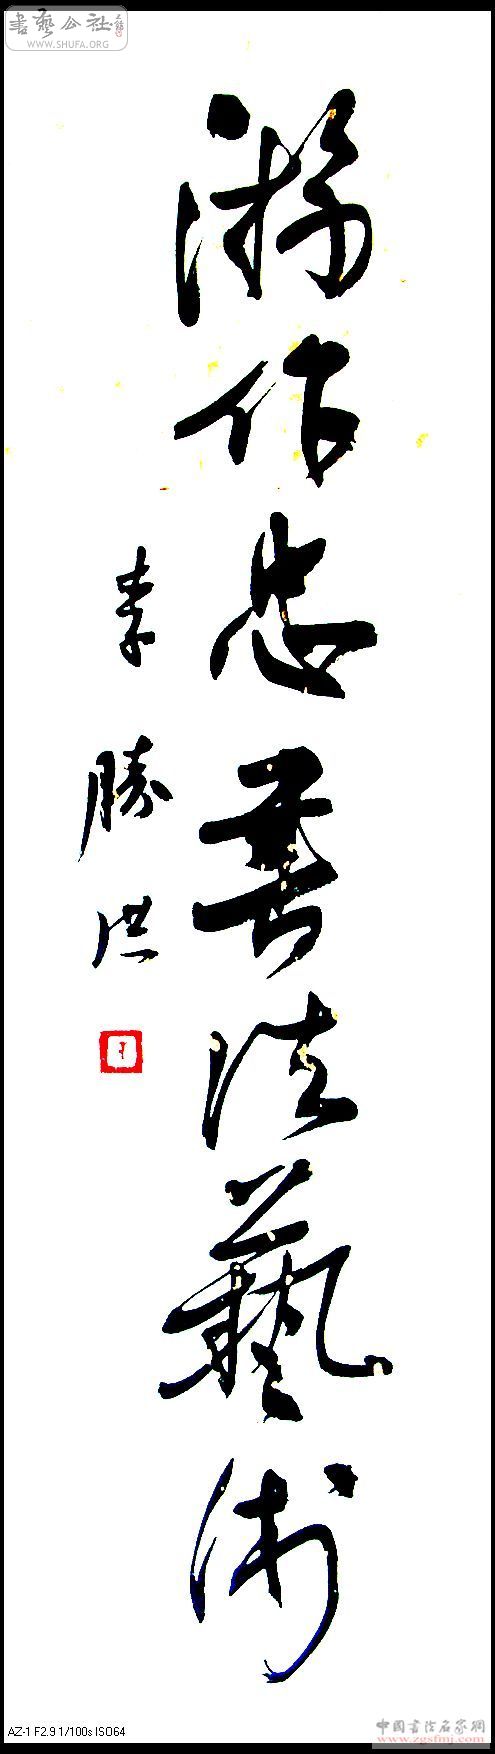 書藝公社
WWW.SHUFA.ORG
游作忠書法藝術
李勝洪
AZ-1 F2.9 1/100s ISO64
中國書法名家網
www.zgsfmj.com